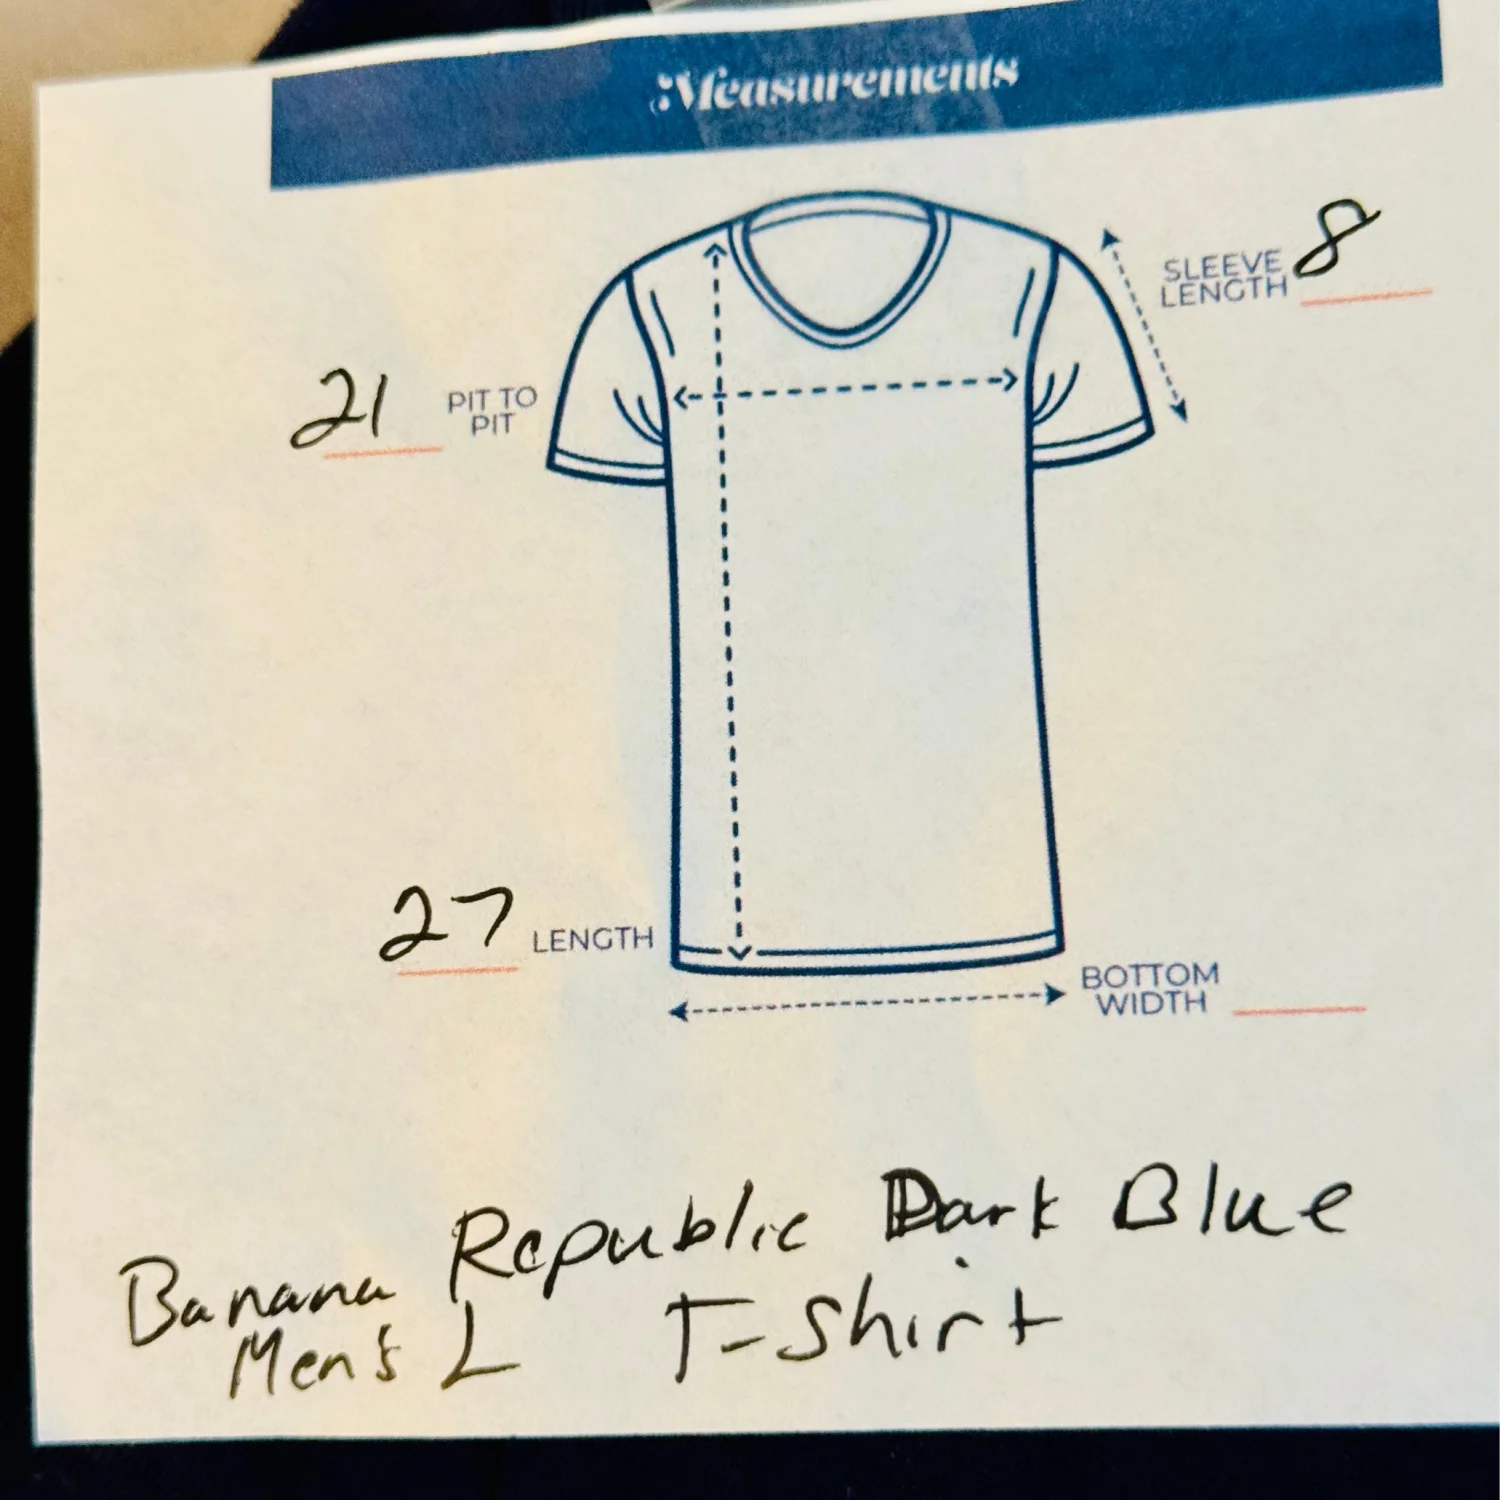 Measurements
SLEEVE 8
LENGTH
21 PIT TO
PIT
27 LENGTH
BOTTOM
WIDTH
Banana Republic Dark Blue
Men's L T-Shirt